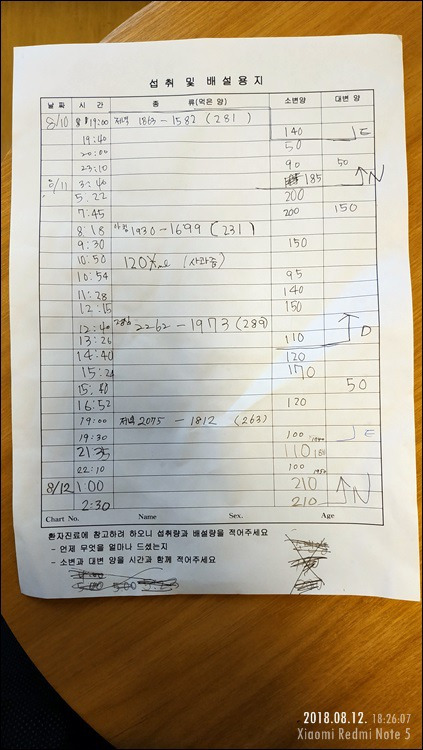 섭취 및 배설용지
날 짜 시 간 종 류(먹은 양) 소변양 대변 양
8/10 19:00 저녁 1863-1582 (281)
19:40 140 E
20:00 50
23:10 90 50
8/11 3:40 185 N
5:22 200
7:45 200 150
8:18 아침 1930-1699 (231)
9:30 150
10:50 120 ml (사과즙)
10:54 95
11:28 140
12:15 150
12:40 점심 2262-1973 (289)
13:26 110 D
14:40 120
15:24 170
15:40 50
16:52 120
19:00 저녁 2075-1812 (263)
19:30 100 E
21:35 110
22:10 100
8/12 1:00 210 N
2:30 210
Chart No. Name Sex. Age
환자진료에 참고하려 하오니 섭취량과 배설량을 적어주세요
- 언제 무엇을 얼마나 드셨는지
- 소변과 대변 양을 시간과 함께 적어주세요
2018.08.12. 18:26:07
Xiaomi Redmi Note 5